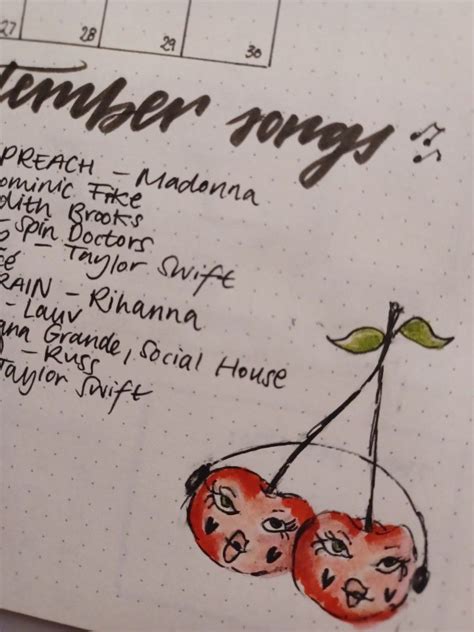 27 28 29 30
tember songs
PREACH – Madonna
ominic Fike
dith Brooks
– Spin Doctors
– Taylor Swift
cé
RAIN – Rihanna
– Lauv
ana Grande, Social House
– Russ
Taylor Swift